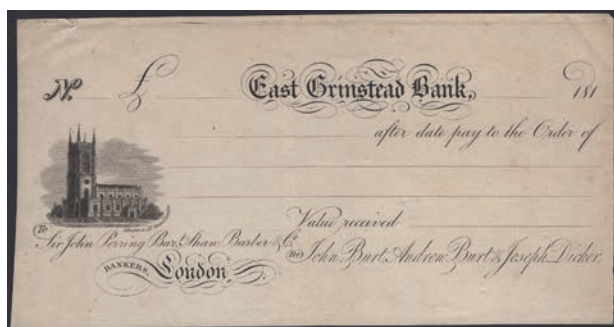 No. £ East Grinstead Bank, 181
after date pay to the Order of
Value received
To Sir John Perring Bart. Shaw Barber & Co.
BANKERS, London
For John Burt, Andrew Burt & Joseph Dicker.